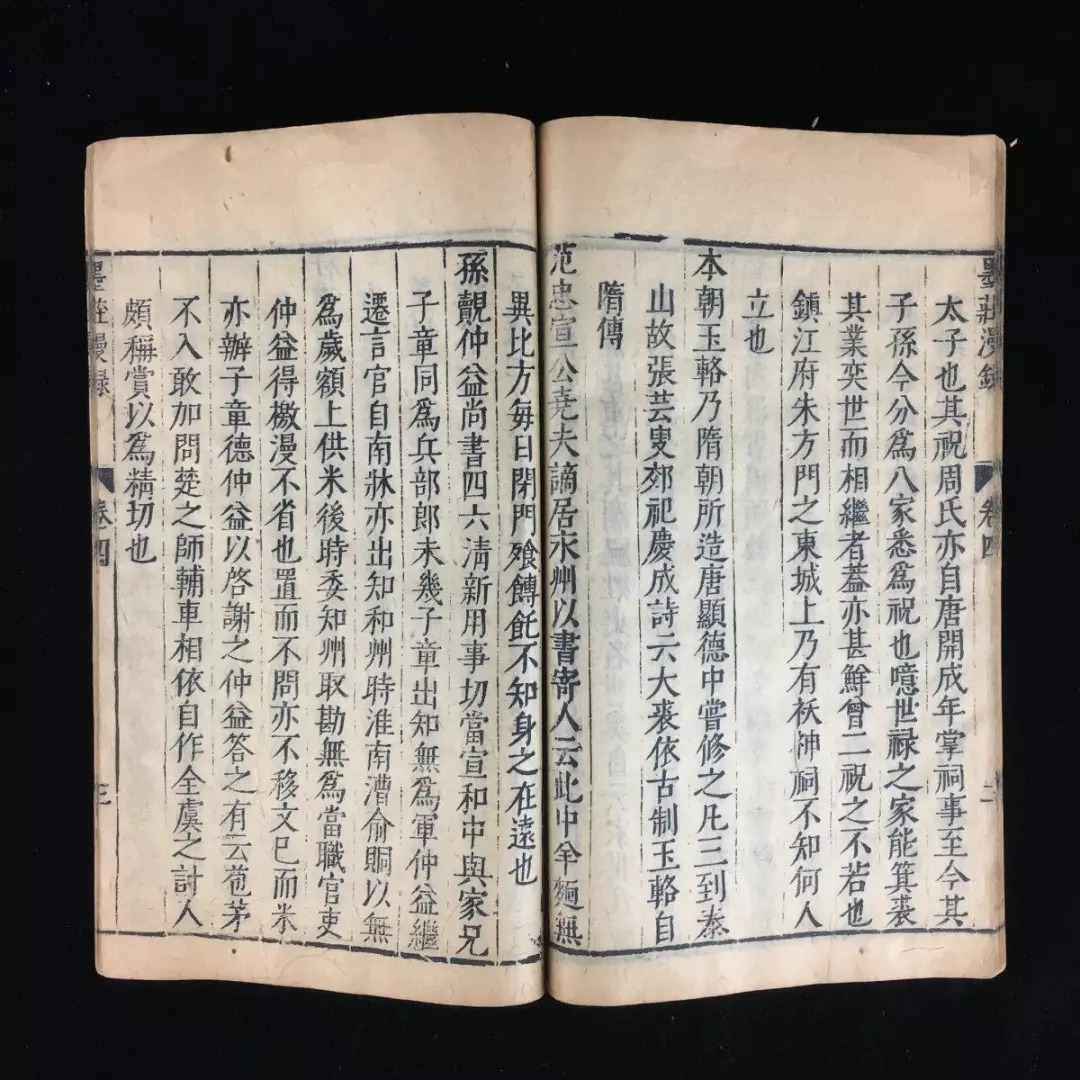 墨莊漫錄
卷四
二
太子也其祝周氏亦自唐開成年掌祠事至今其
子孫今分爲八家悉爲祝也噫世禄之家能箕裘
其業奕世而相繼者葢亦甚鮮曾二祝之不若也
鎮江府朱方門之東城上乃有祆神祠不知何人
立也
本朝玉輅乃隋朝所造唐顯德中嘗修之凡三到泰
山故張芸叟郊祀慶成詩云大裘依古制玉輅自
隋傳
范忠宣公堯夫謫居永州以書寄人云此中羊麵無
異比方每日閉門飱餺飥不知身之在遠也
孫覿仲益尚書四六清新用事切當宣和中與家兄
子章同爲兵部郎未幾子章出知無爲軍仲益繼
遷言官自南牀亦出知和州時淮南漕俞䦺以無
爲歲額上供米後時委知州取勘無爲當職官吏
仲益得檄漫不省也置而不問亦不移文已而米
亦辦子章德仲益以啓謝之仲益答之有云苞茅
不入敢加問楚之師輔車相依自作全虞之討人
頗稱賞以爲精切也
墨莊漫録
卷四
三